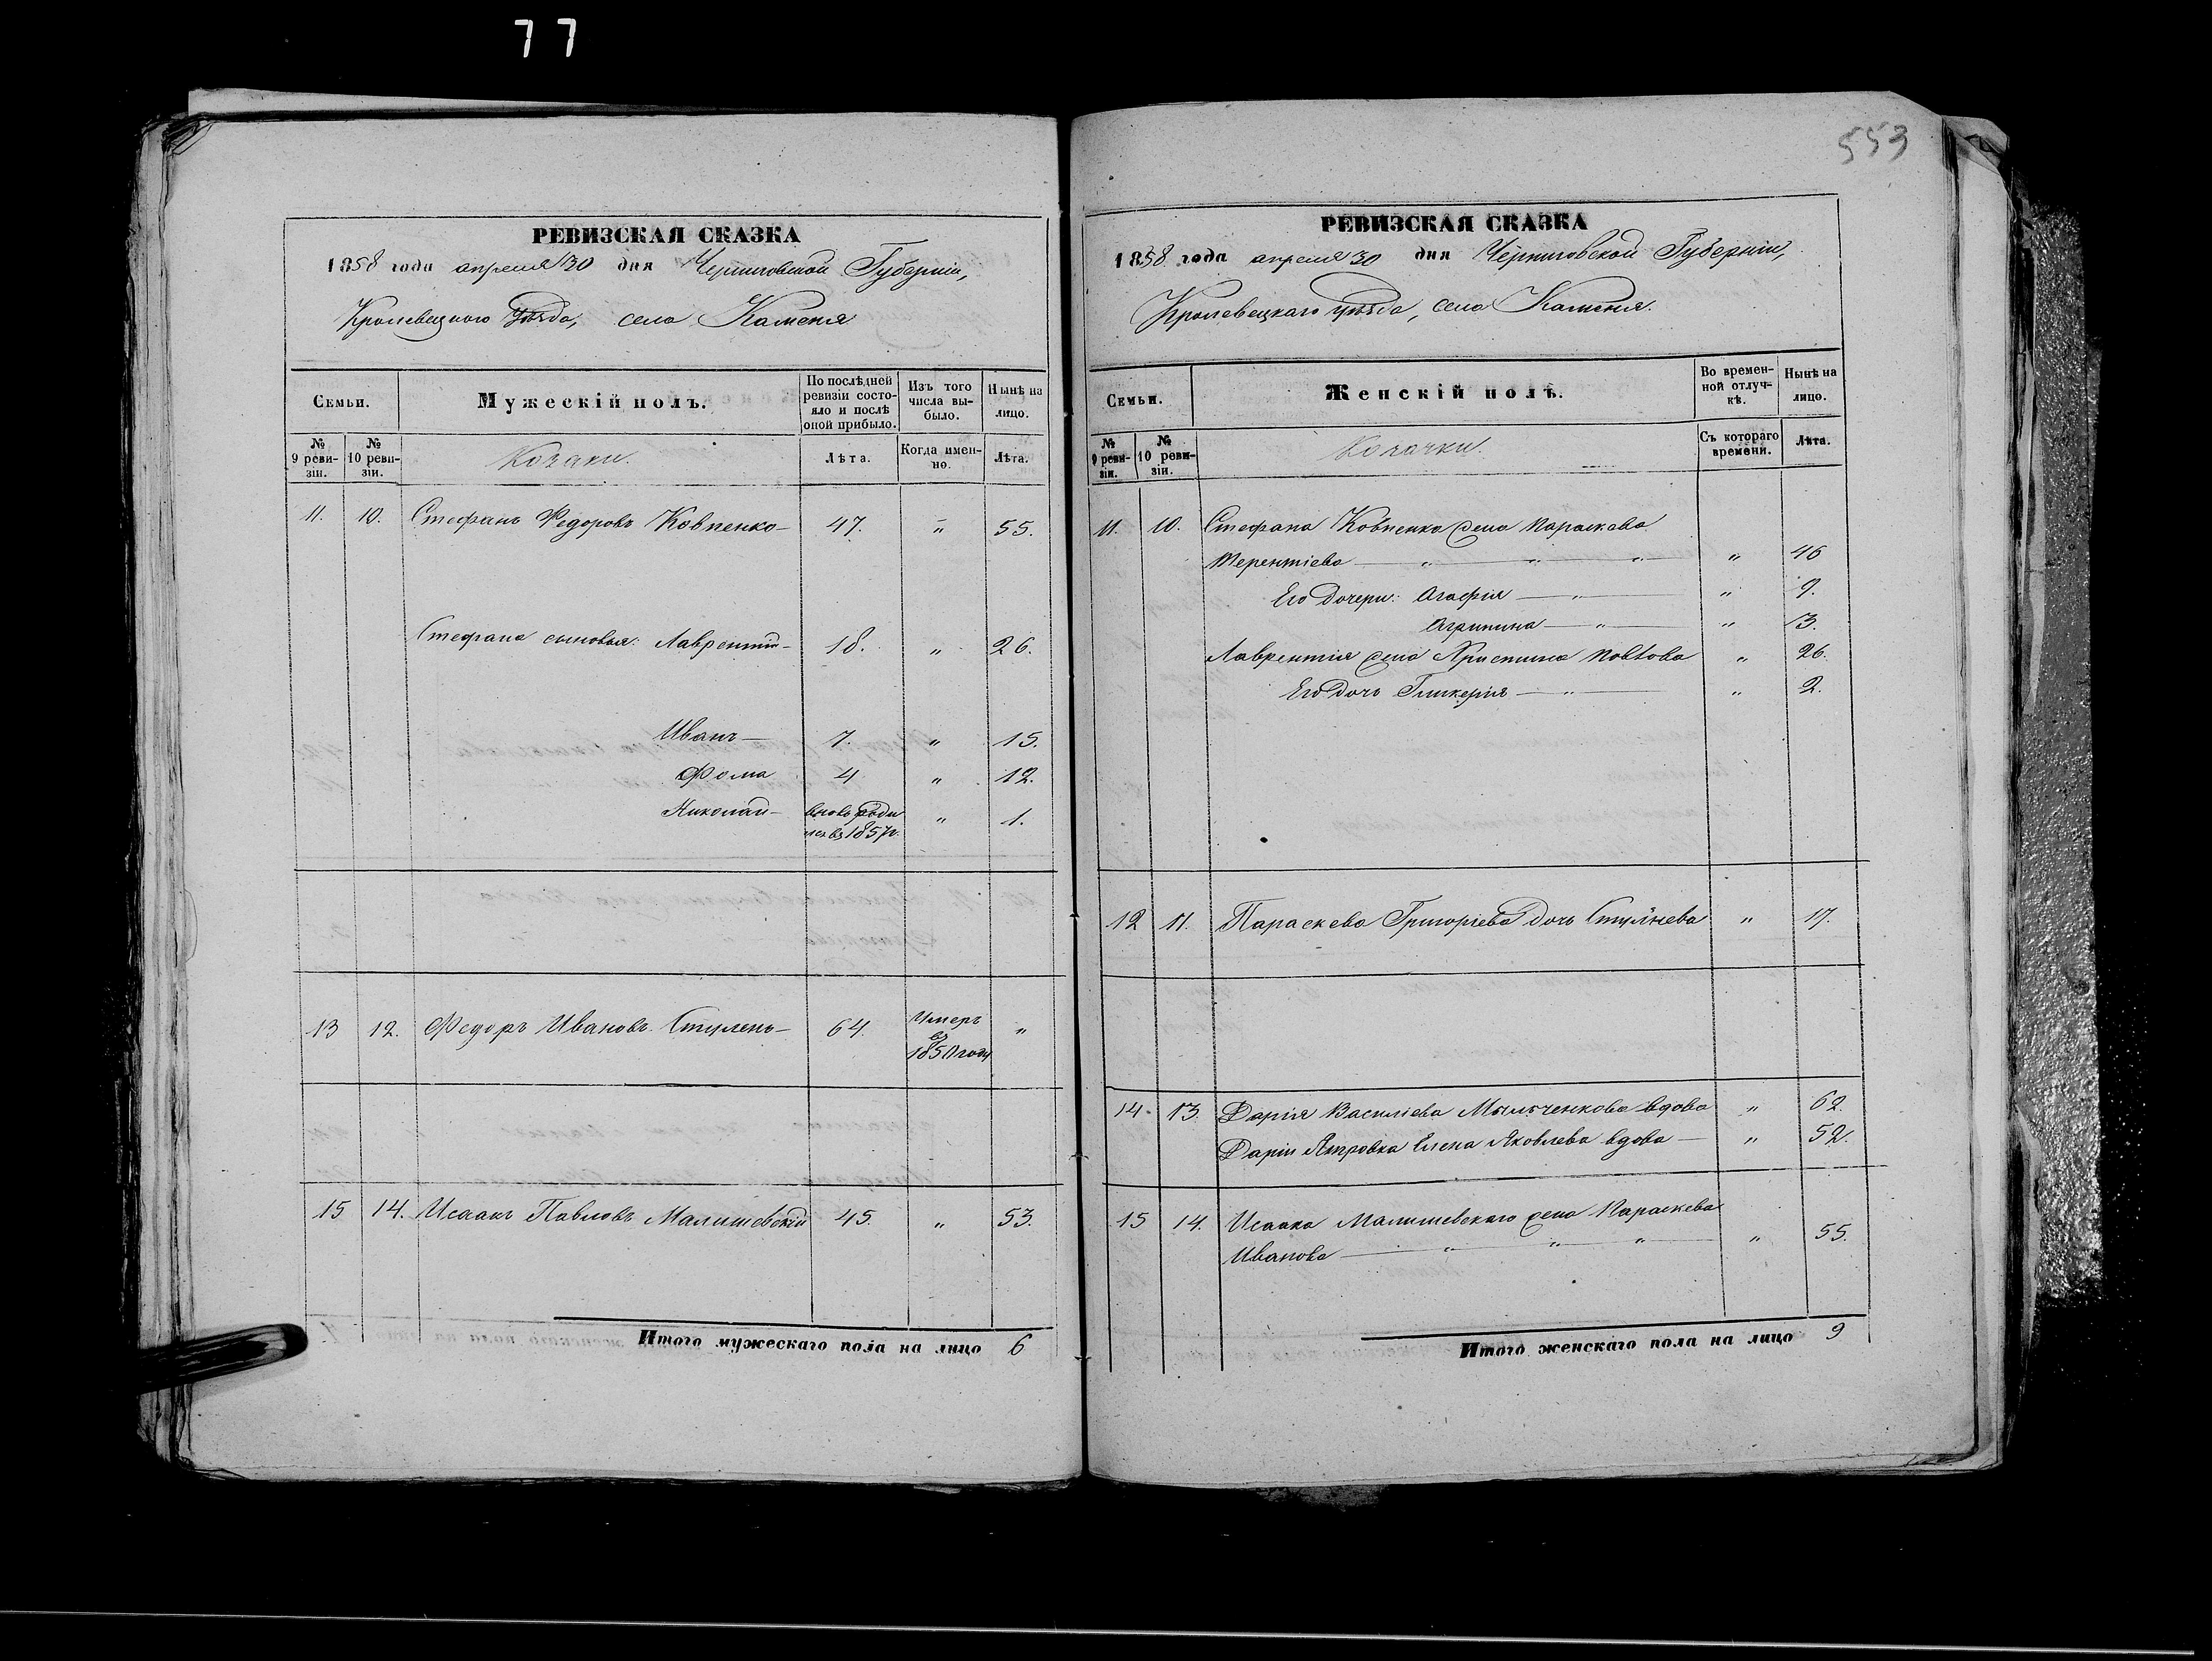 77
РЕВИЗСКАЯ СКАЗКА
1858 года апреля 30 дня Черниговской Губерніи,
Кролевецкого Уѣзда, села Каменя
Семьи.
Мужескій полъ.
По послѣдней ревизіи состояло и послѣ оной прибыло.
Изъ того числа выбыло.
Нынѣ на лицо.
№ 9 ревизіи.
№ 10 ревизіи.
Козаки.
Лѣта.
Когда именно.
Лѣта.
11. 10. Стефанъ Федоровъ Ковпенко — 47. " 55.
Стефана сыновья: Лаврентій — 18. " 26.
Иванъ — 7. " 15.
Фома 4 " 12.
Николай — вновь роди
лся въ 1857 г. " 1.
13 12. Федоръ Ивановъ Стулень — 64. Умеръ "
въ
1850 году
15 14. Исаакъ Павловъ Малишевскій 45. " 53.
Итого мужескаго пола на лицо 6
553
РЕВИЗСКАЯ СКАЗКА
1858 года апреля 30 дня Черниговской Губерніи,
Кролевецкаго уѣзда, села Каменя.
Семьи.
Женскій полъ.
Во временной отлучкѣ.
Нынѣ на лицо.
№ 9 ревизіи.
№ 10 ревизіи.
Козачки.
Съ котораго времени.
Лѣта.
11. 10. Стефана Ковпенка жена Параскева
Терентіева — " " " " 46
Его дочери: Агафія — " — " 9.
Агрипина — " — " 3.
Лаврентія жена Христина " 26.
Его дочь Гликерія — " — " 2.
12 11. Параскева Григоріева дочь Стулнева " 17.
14. 13. Дарія Василіева вдова " 62.
Даріи Ятровка Елена Яковлева вдова — " 52.
15 14. Исаака Малишевскаго жена Параскева
Иванова — " " " " 55.
Итого женскаго пола на лицо 9